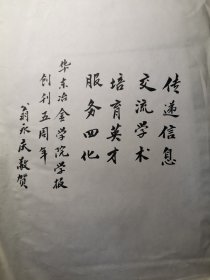 传递信息
交流学术
培育英才
服务四化
华东冶金学院学报
创刊五周年
翁永庆敬贺